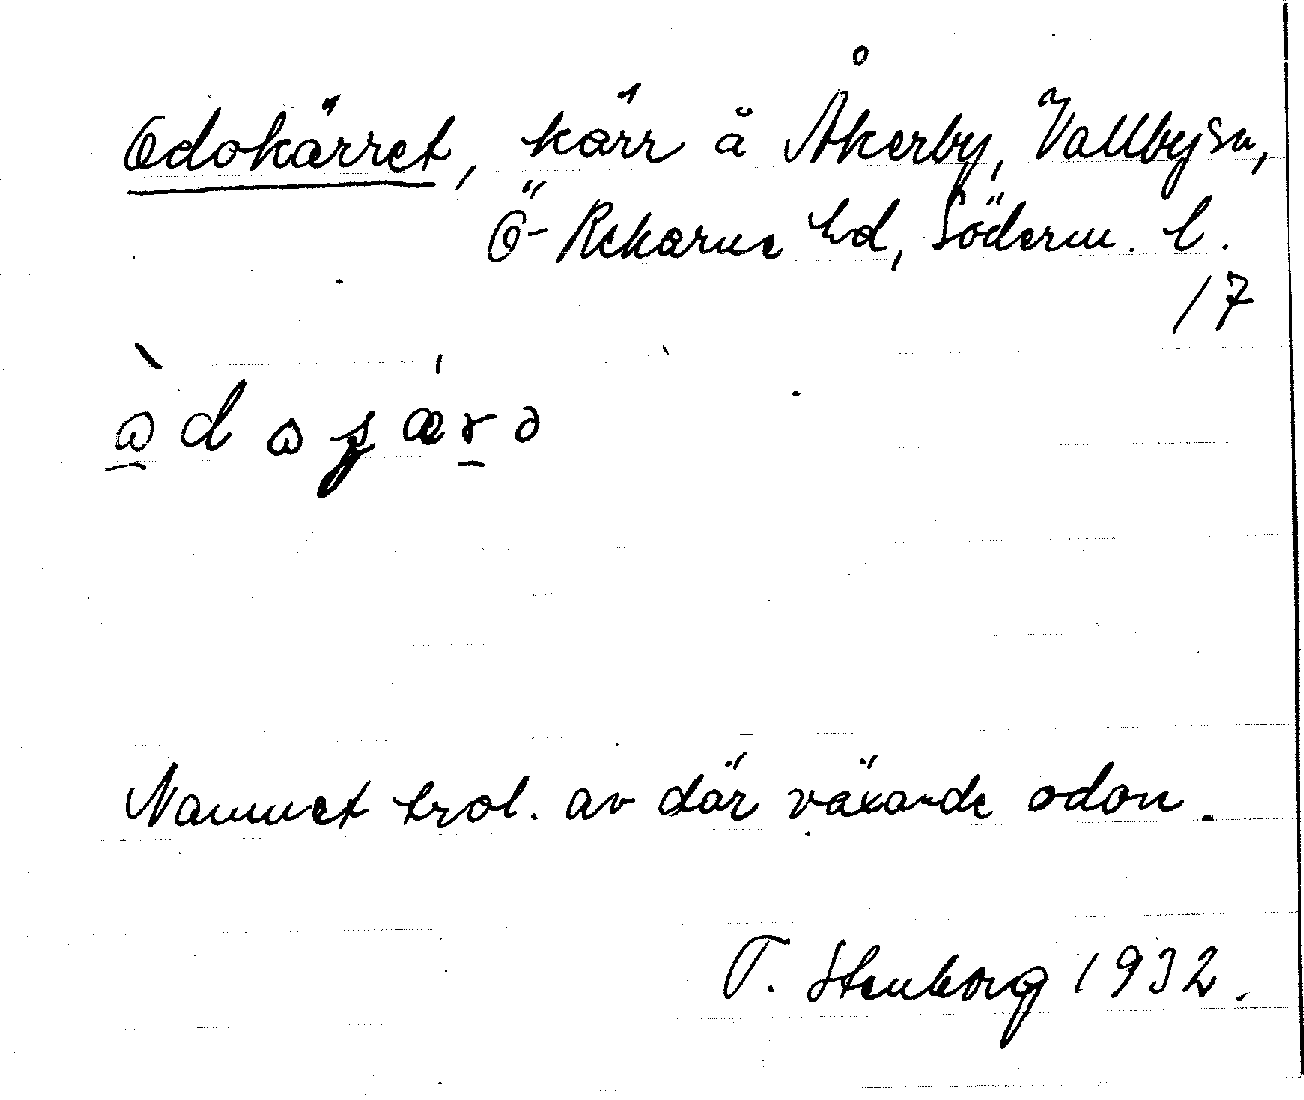 Odokärret, kärr å Åkerby, Vallby sn,
Ö-Rekarne hd, Söderm. l.
17
Namnet trol. av där växande odon.
T. Stenborg 1932.